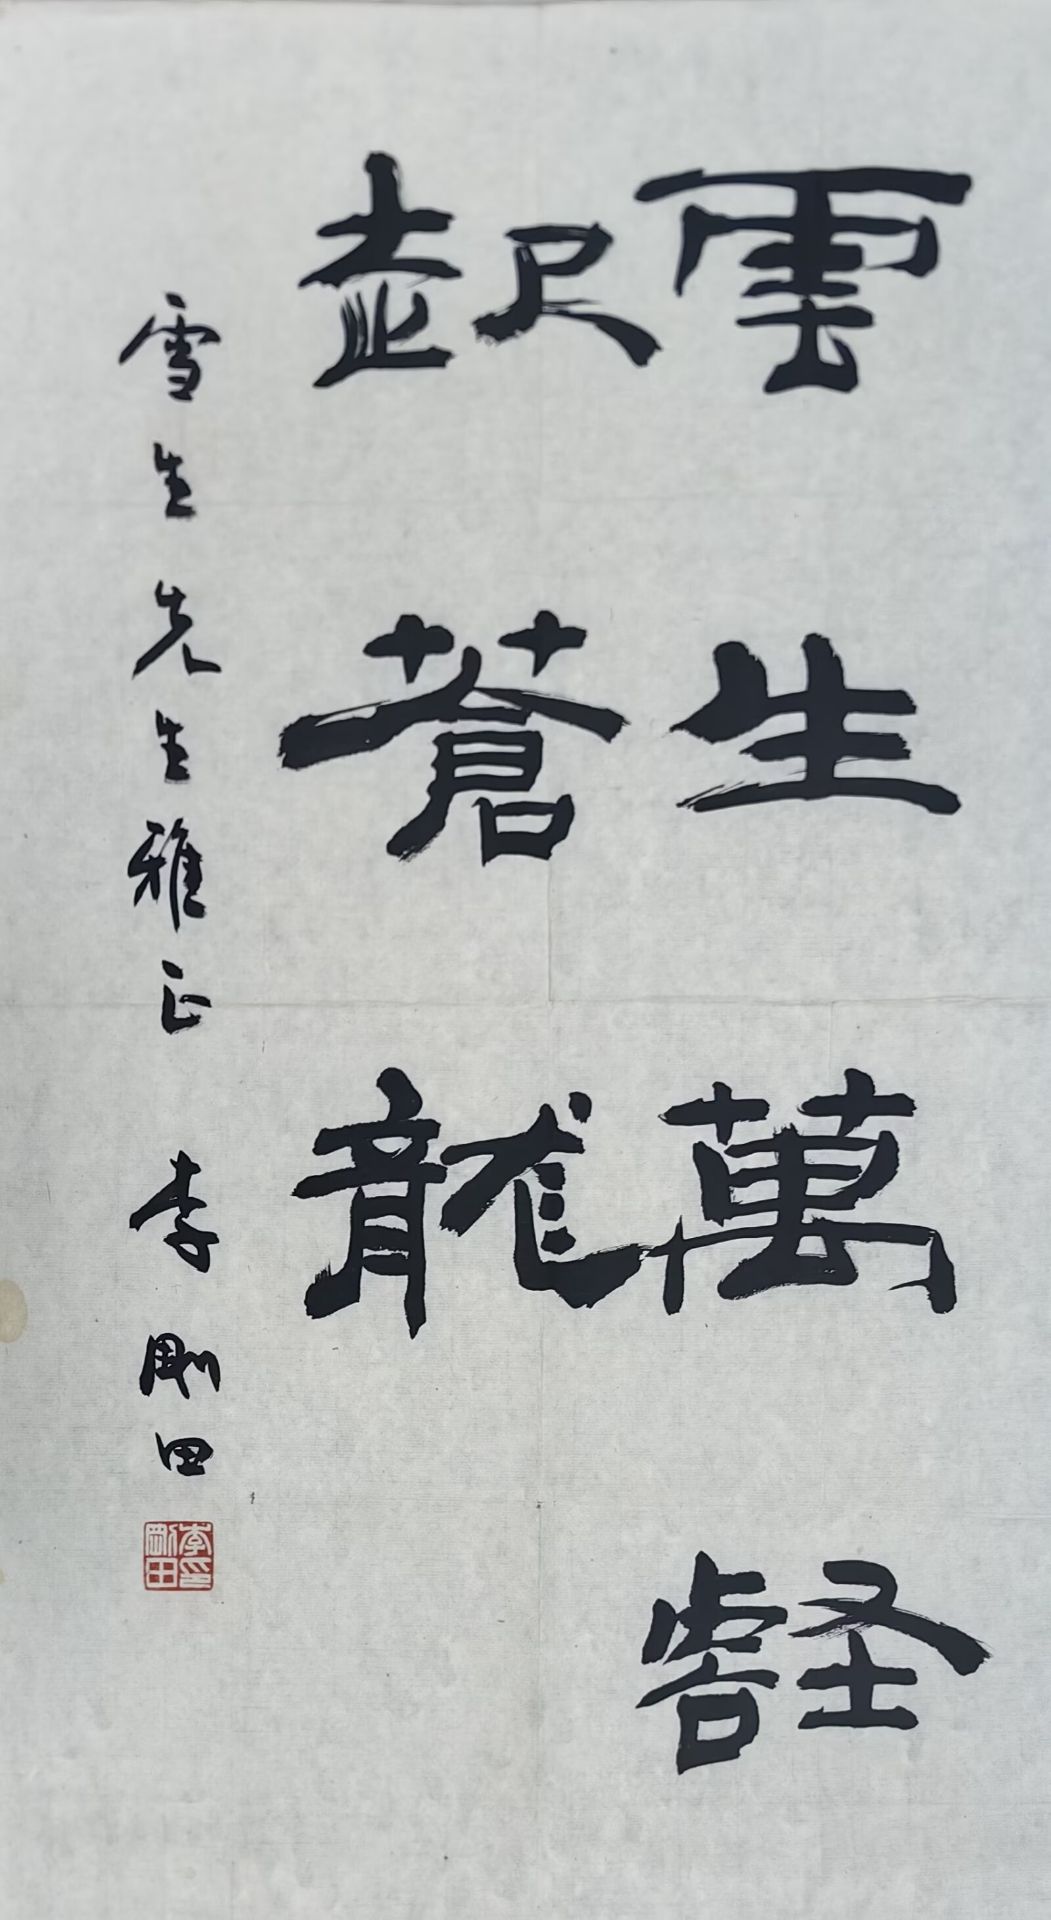 雲生萬壑
起蒼龍
雪生先生雅正 李剛田
李印
剛田